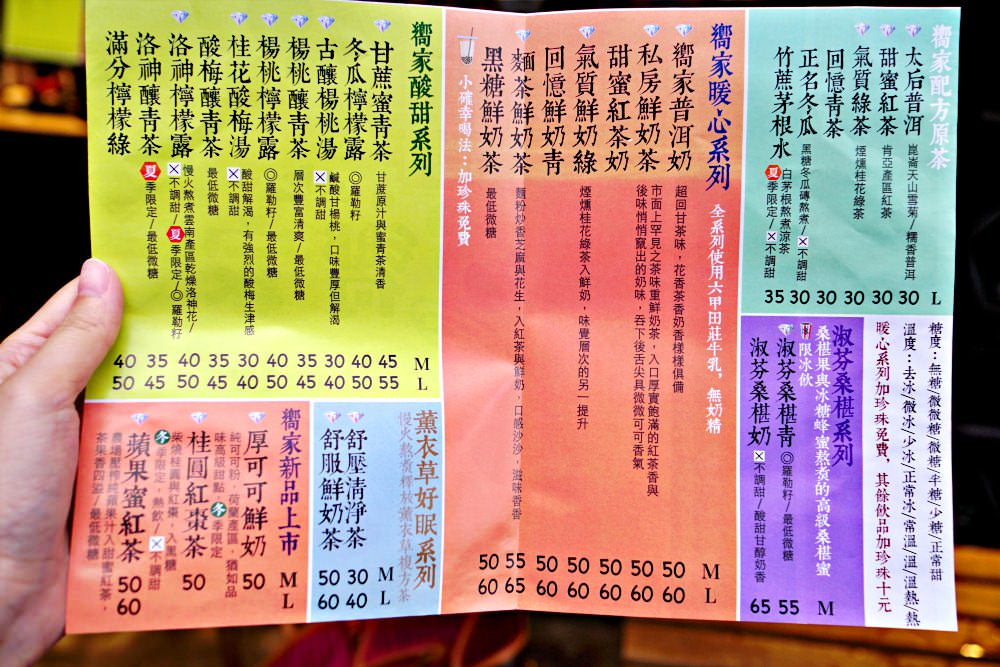 嚮家配方原茶
太后普洱 崑崙天山雪菊/糯香普洱 30
甜蜜紅茶 肯亞產區紅茶 30
氣質綠茶 煙燻桂花綠茶 30
回憶青茶 30
正名冬瓜 黑糖冬瓜磚熬煮/不調甜 30
竹蔗茅根水 夏季限定/不調甜 35
白茅根熬煮涼茶
L
糖度：無糖/微微糖/微糖/半糖/少糖/正常甜
溫度：去冰/微冰/少冰/正常冰/常溫/溫/溫熱/熱
暖心系列加珍珠免費，其餘飲品加珍珠十元
淑芬桑椹系列
桑椹果與冰糖蜂蜜熬煮的高級桑椹蜜
限冰飲
淑芬桑椹青 ◎羅勒籽/最低微糖 55
淑芬桑椹奶 不調甜/酸甜甘醇奶香 65
M
嚮家暖心系列
全系列使用六甲田莊牛乳，無奶精
嚮家普洱奶 超回甘茶味，花香茶香奶香樣樣俱備 50 60
私房鮮奶茶 市面上罕見之茶味重鮮奶茶，入口厚實飽滿的紅茶香與
後味悄悄竄出的奶味，吞下後舌尖具微微可可香氣 50 60
甜蜜紅茶奶 50 60
氣質鮮奶綠 煙燻桂花綠茶入鮮奶，味覺層次的另一提升 50 60
回憶鮮奶青 50 60
麵茶鮮奶茶 麵粉炒香芝麻與花生，入紅茶與鮮奶，口感沙沙，滋味香香 55 65
黑糖鮮奶茶 最低微糖 50 60
小確幸喝法：加珍珠免費
M
L
嚮家酸甜系列
甘蔗蜜青茶 甘蔗原汁與蜜青茶清香 45 55
冬瓜檸檬露 ◎羅勒籽 40 50
古釀楊桃湯 鹹酸甘楊桃，口味豐厚但解渴
不調甜 30 40
楊桃釀青茶 層次豐富清爽/最低微糖 35 45
楊桃檸檬露 ◎羅勒籽/最低微糖 40 50
桂花酸梅湯 酸甜解渴，有強烈的酸梅生津感
不調甜 30 40
酸梅釀青茶 最低微糖 35 45
洛神檸檬露 慢火熬煮雲南產區乾燥洛神花/
不調甜/夏季限定/◎羅勒籽 40 50
洛神釀青茶 夏季限定/最低微糖 35 45
滿分檸檬綠 40 50
M
L
薰衣草好眠系列
慢火熬煮釋放薰衣草複方茶
舒壓清淨茶 30 40
舒服鮮奶茶 50 60
M
L
嚮家新品上市
厚可可鮮奶 純可可粉，荷蘭產區，猶如品
味高級甜點 冬季限定 50
桂圓紅棗茶 柴燒桂圓與紅棗，入黑糖
冬季限定，熱飲/不調甜 50
蘋果蜜紅茶 農場壓榨蘋果汁入甜蜜紅茶，
茶果香四溢/最低微糖 50 60
M
L